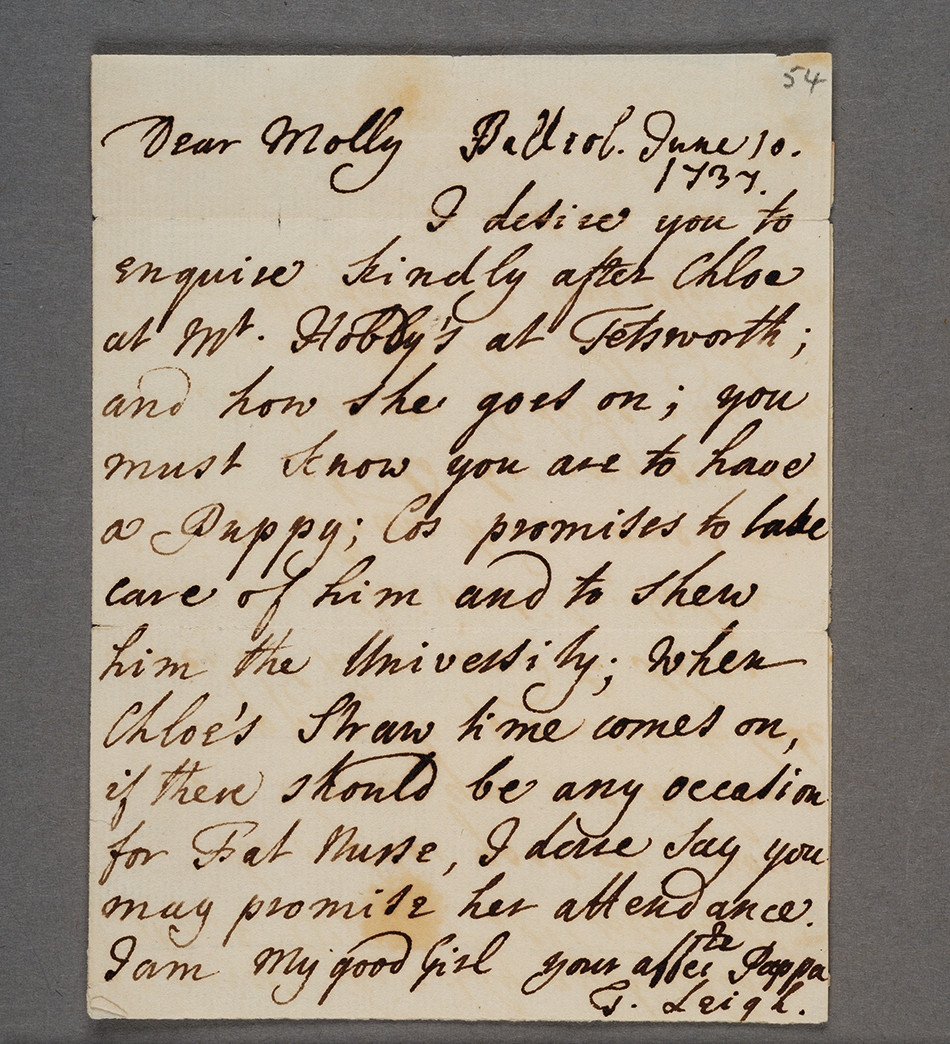 54
Dear Molly Balliol. June 10.
1737.
I desire you to
enquire kindly after Chloe
at Mr. Hobby's at Tetsworth;
and how she goes on; you
must know you are to have
a Puppy; Cos promises to take
care of him and to shew
him the University; When
Chloe's Straw time comes on,
if there should be any occasion
for Fat Nurse, I dare say you
may promise her attendance.
I am My good Girl your affcte Pappa
T. Leigh.